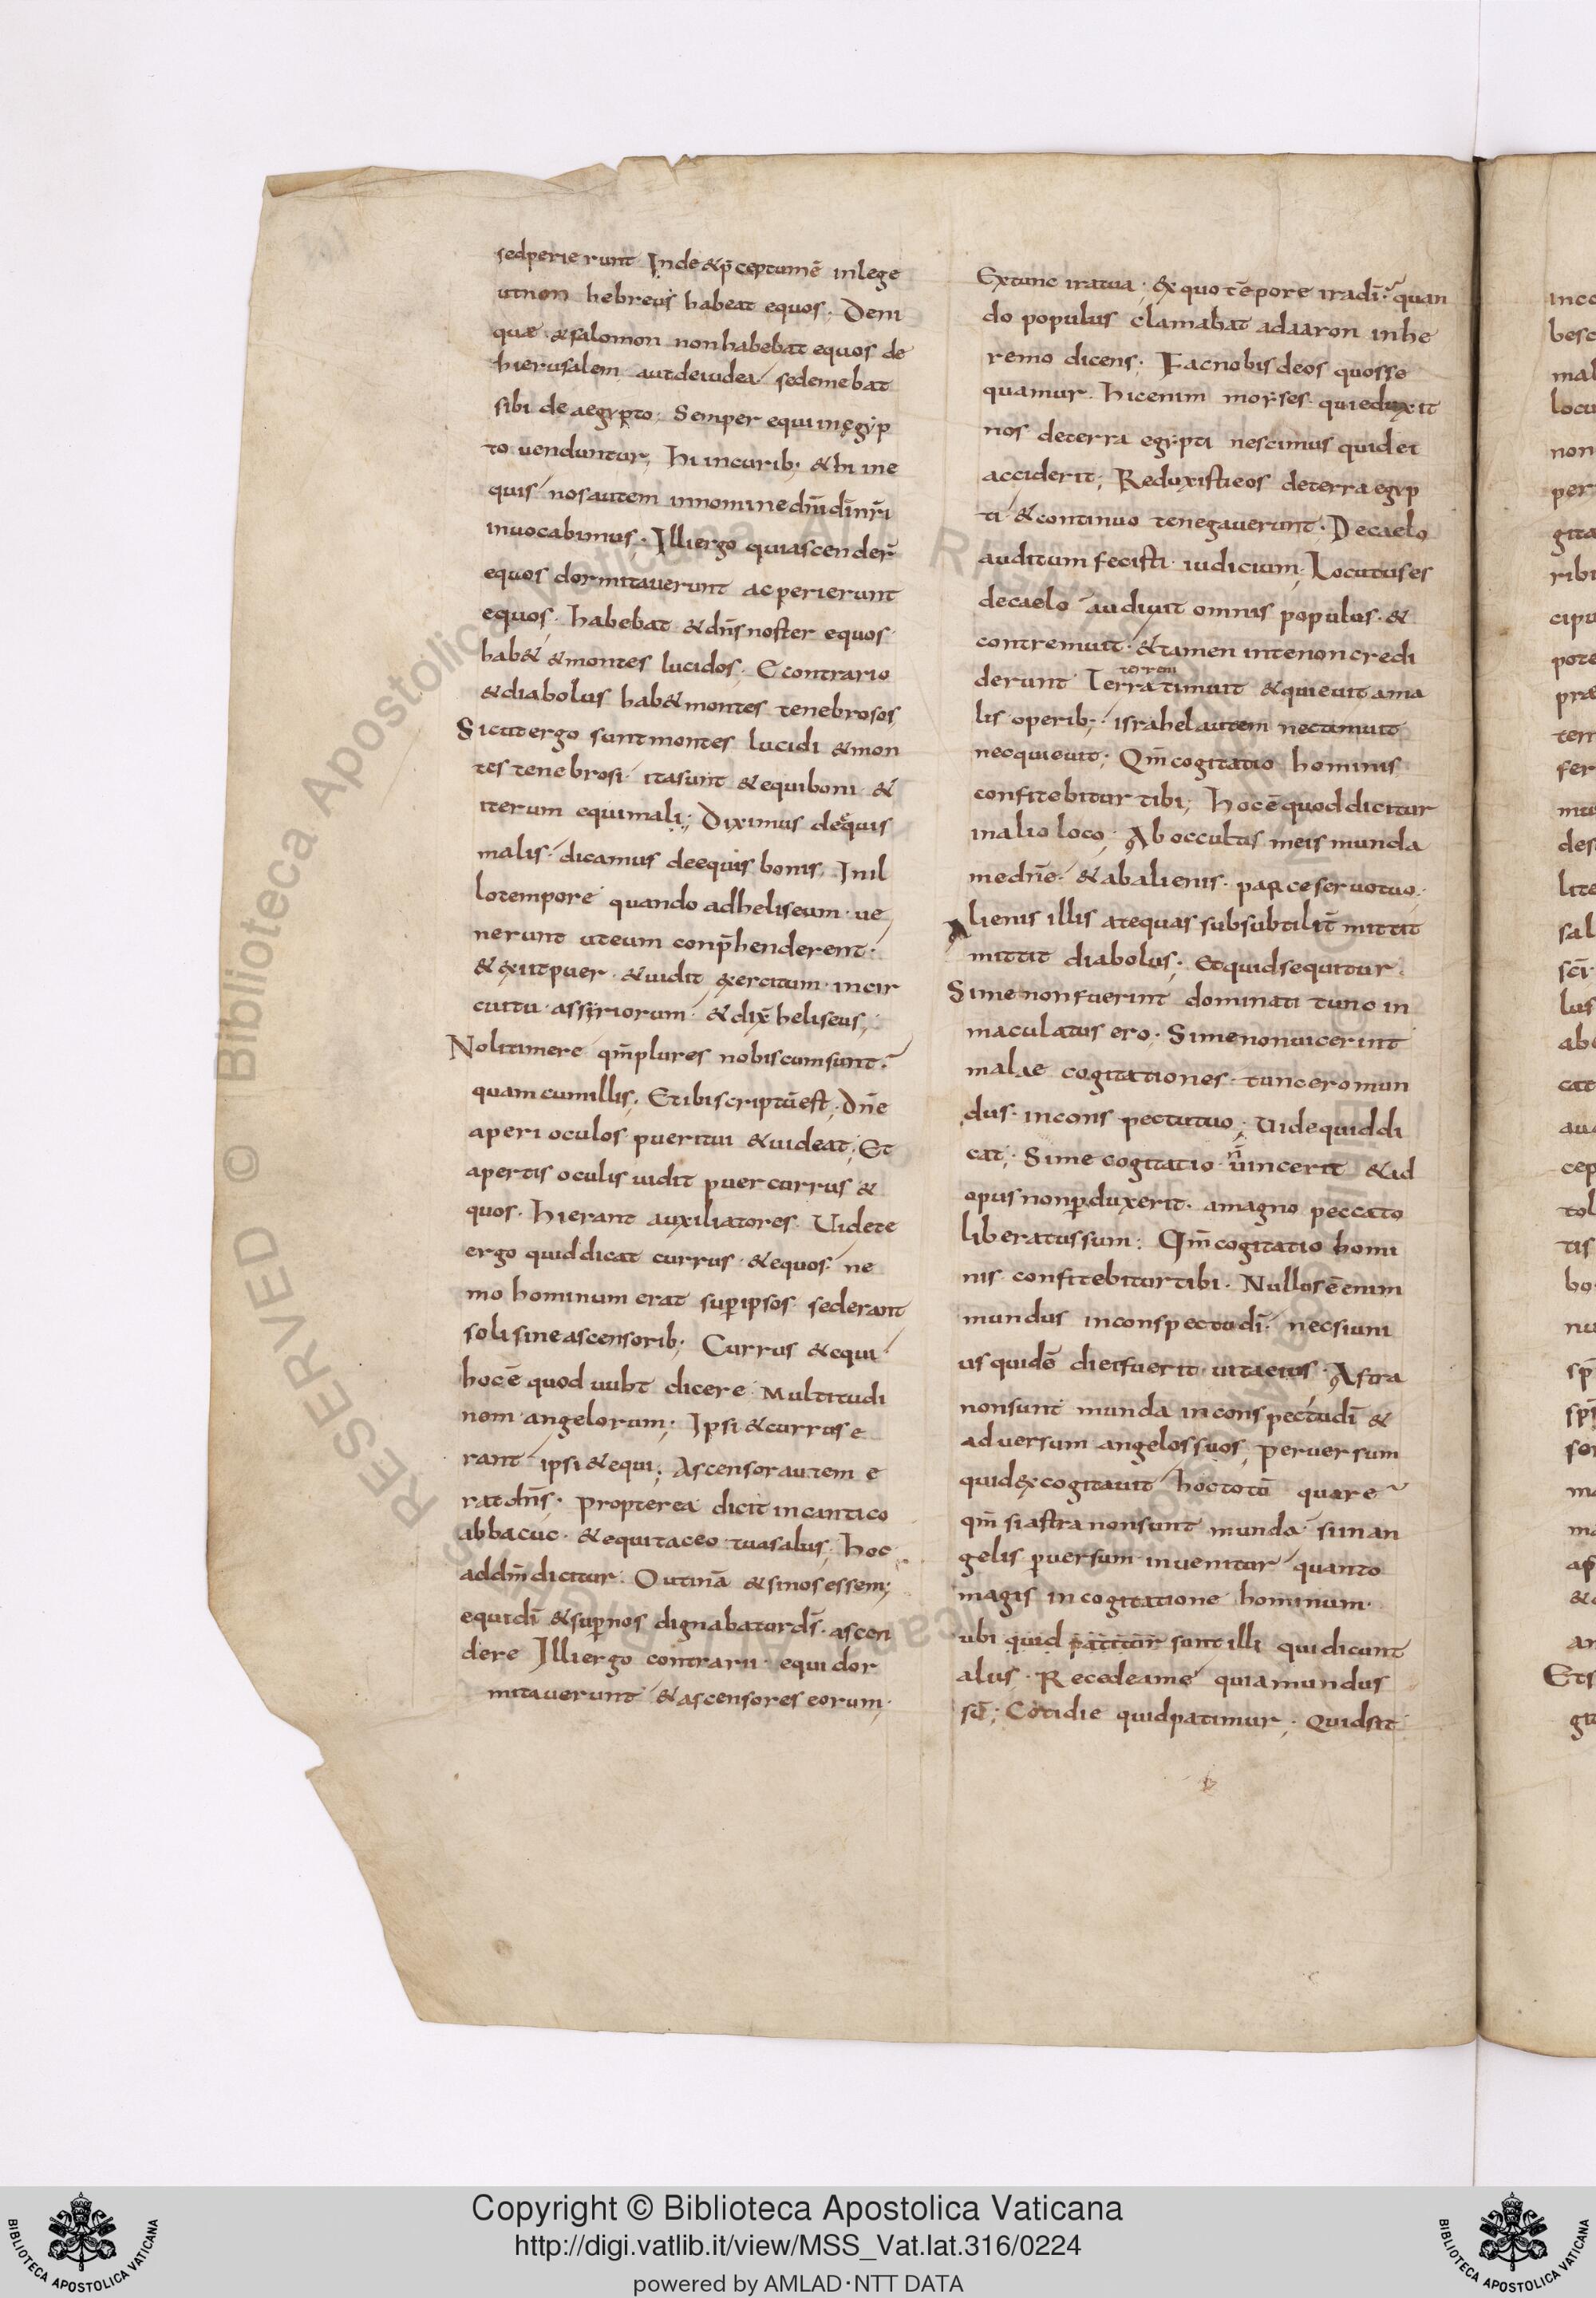 sedperierunt Inde & p̄ceptumē inlege
utnon hebreus habeat equos. Deni
quae & salomon nonhabebat equos de
hierusalem autdeiudea sedemebat
sibi de aegypto; Semper equi inęgyp
to uenduntur; Hi incurib; & hi ine
quis nosautem innomine dn̄i dī nr̄i
inuocabimus. Illiergo quiascender̄
equos dormitauerunt acperierunt
equos. habebat & dn̄s noster equos
hab& & montes lucidos; Econtrario
& diabolus hab& montes tenebrosos
Sicutergo suntmontes lucidi & mon
tes tenebrosi itasunt & equiboni &
iterum equimali; Diximus dequis
malis dicamus deequis bonis. Inil
lotempore quando adheliseum ue
nerunt uteum conp̄henderent.
& exiitpuer & uidit exercitum incir
cuitu assyriorum & dix̄ heliseus;
Nolitimere qm̄ plures nobiscumsunt
quam cumillis; Etibiscriptūest; Dn̄e
aperi oculos pueritui & uideat; Et
apertis oculis uidit puer currus &
quos. Hierant auxiliatores Uidete
ergo quiddicat currus & equos ne
mo hominum erat sup̄ipsos sederant
soli sineascensorib; Currus & equi
hocē quod uubt dicere Multitudi
nem angelorum; Ipsi & currus e
rant ipsi & equi; Ascensorautem e
ratdn̄s. Propterea dicit incantico
abbacuc & equitaceo tuasalus; Hoc
addn̄m dicitur Outinā & sinosessem;
equidī & sup̄nos dignabaturds̄ ascen
dere Illiergo contrarii equi dor
mitauerunt & ascensores eorum;
Extunc iratua; Exquo tēpore iradī quan
do populus clamabat adaaron inhe
remo dicens; Facnobis deos quosse
quamur. Hicenim moyses quieduxit
nos deterra egypti nescimus quid ei
acciderit; Reduxistieos deterra egyp
ti & continuo tenegauerunt. Decaelo
auditum fecisti iudicium; Locutuses
decaelo audiuit omnis populus &
contremuit & tamen intenoncredi
torem
derunt Terra timuit & quieuit ama
lis operib; israhelautem nectimuit
necquieuit; Qm̄ cogitatio hominis
confitebitur tibi; Hocē quoddicitur
inalio loco; Aboccultis meis munda
medn̄e & abalienis parce seruotuo
Alienis illis atequas subsubtiliī mittit
mittit diabolus; Etquidsequitur
Sime nonfuerint dominati tunc in
maculatus ero. Simenonuicerint
malae cogitationes tunceromun
dus inconspectutuo; Uidequiddi
cat; Sime cogitatio n̄ uincerit & id
opus nonp̄duxerit amagno peccato
liberatussum; Qm̄ cogitatio homi
nis confitebiturtibi. Nullusē enim
mundus inconspectudī necsiuni
us quidē dieifuerit uitaeius Astra
nonsunt munda inconspectudī &
aduersum angelossuos peruersum
quidexcogitauit hoctotū quare
qm̄ siastra nonsunt munda siinan
gelis puersum inuenitur quanto
magis incogitatione hominum
ubi quid patitur sunt illi quidicunt
alus. Recedeame quiamundus
sū; Cotidie quidpatimur; Quidsit
Copyright © Biblioteca Apostolica Vaticana
http://digi.vatlib.it/view/MSS_Vat.lat.316/0224
powered by AMLAD·NTT DATA